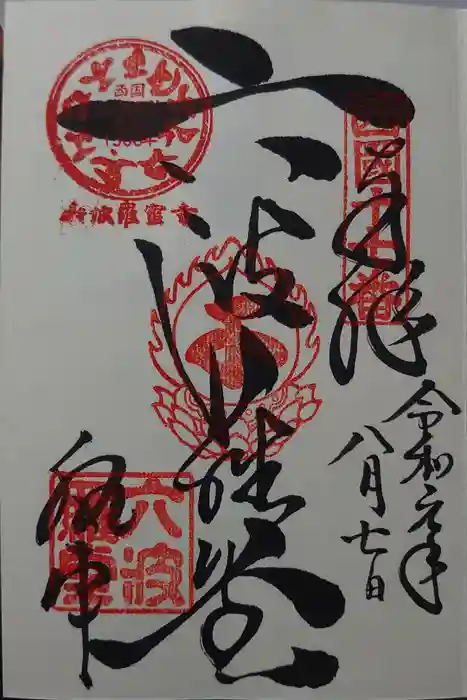 西国十七番
奉拝
令和元年
八月七日
六波羅堂
西国
1300年
六波羅蜜寺
六波
羅蜜